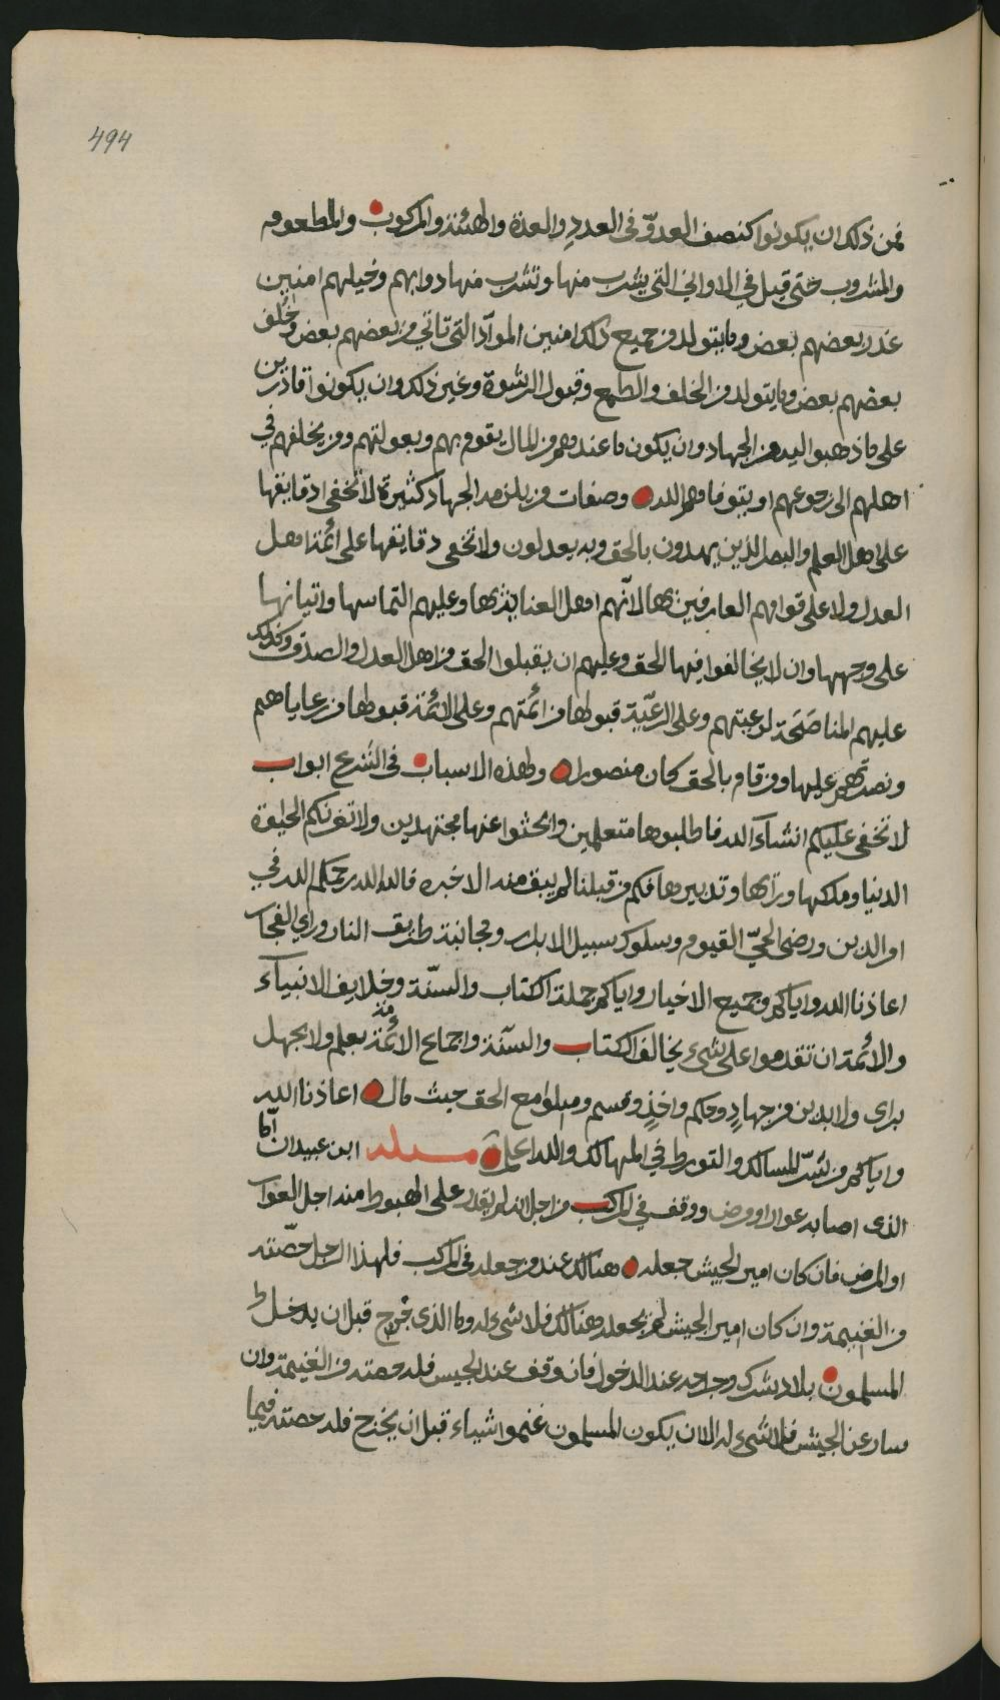 494
فمن ذلك ان يكونوا كنصف العدوّ فى العددِ والعدة والهئنة والمركوب والمطعوم
والمشروب حتى قيل في الاواني التي يشرب منها وتشرب منها دوابهم وخيلهم امنين
غدر بعضهم بعض وما يتولد من جميع ذلك امنين الموادّ التى تاتي من بعضهم بعض وخلف
بعضهم بعض وما يتولد من الخلف والطمع وقبول الرشوة وغير ذلك وان يكونوا قادرين
على ما ذهبوا اليه من الجهاد وان يكون ما عندهم من المال يقوم بهم وبعولتهم ومن يخلفهم في
اهلهم الى رجوعهم او يتوفاهم الله وصفات من يلزمه الجهاد كثيرة لا تخفى دقايقها
على اهل العلم والبصر الذين يهدون بالحق وبه يعدلون ولا تخفى دقايقها على ائمة اهل
العدل ولا على قوامهم العارفين بها لانّهم اهل العناية بها وعليهم التماسها واتيانها
على وجهها وان لا يخالفوا فيها الحق وعليهم ان يقبلوا الحق من اهل العدل والصدق وكذلك
عليهم المناصَحَة لرعيتهم وعلى الرعيّة قبولها من ائمتهم وعلى الائمة قبولها من رعاياهم
ونصرتهم عليها ومن قام بالحق كان منصورا ولهذه الاسباب فى الشرع ابواب
لا تخفى عليكم انشآء الله فاطلبوها متعلمين وابحثوا عنها مجتهدين ولا تغرنكم الحياوة
الدنيا وملكها وتراها وتدبيرها فكم من قبلنا لم يبق منه الا خبره فالله الله رحمكم الله في
امر الدين ورضى الحيّ القيوم وسلوك سبيل الابرار ومجانبة طريق النار وراي الفجار
اعاذنا الله واياكم وجميع الاخيار واياكم جملة الكتاب والسنّة وخلايف الانبيآء
والائمة ان تقدموا على شىء يخالف الكتاب والسنّة واجماع الائمة بعلم ولا بجهل
براى ولا بدين من جهادٍ وحكم واخذٍ وقسم وميلوا مع الحق حيث مال اعاذنا الله
واياكم من شرّ المسالك والتورط في المهالك والله اعلم مسئلة ابن عبيدان امّا
الذى اصابه عوار او مرض ووقف في المركب من اجل انه لم يقدر على الهبوط منه اجل العوار
او المرض فان كان امير الجيش جعله هنالك عند من جعله فى المركب فلهذا الرجل حصّته
من الغنيمة وان كان امير الجيش لم يجعله هنالك فلا شىء له وما الذى جرح قبل ان يدخل
المسلمون بلاد شرك وجراحه عند الدخول فان وقف عند الجيس فله حصته من الغنيمة وان
سار عن الجيش فلا شىء له الا ان يكون المسلمون غنموا اشياء قبل ان يخرج فله حصته فيما